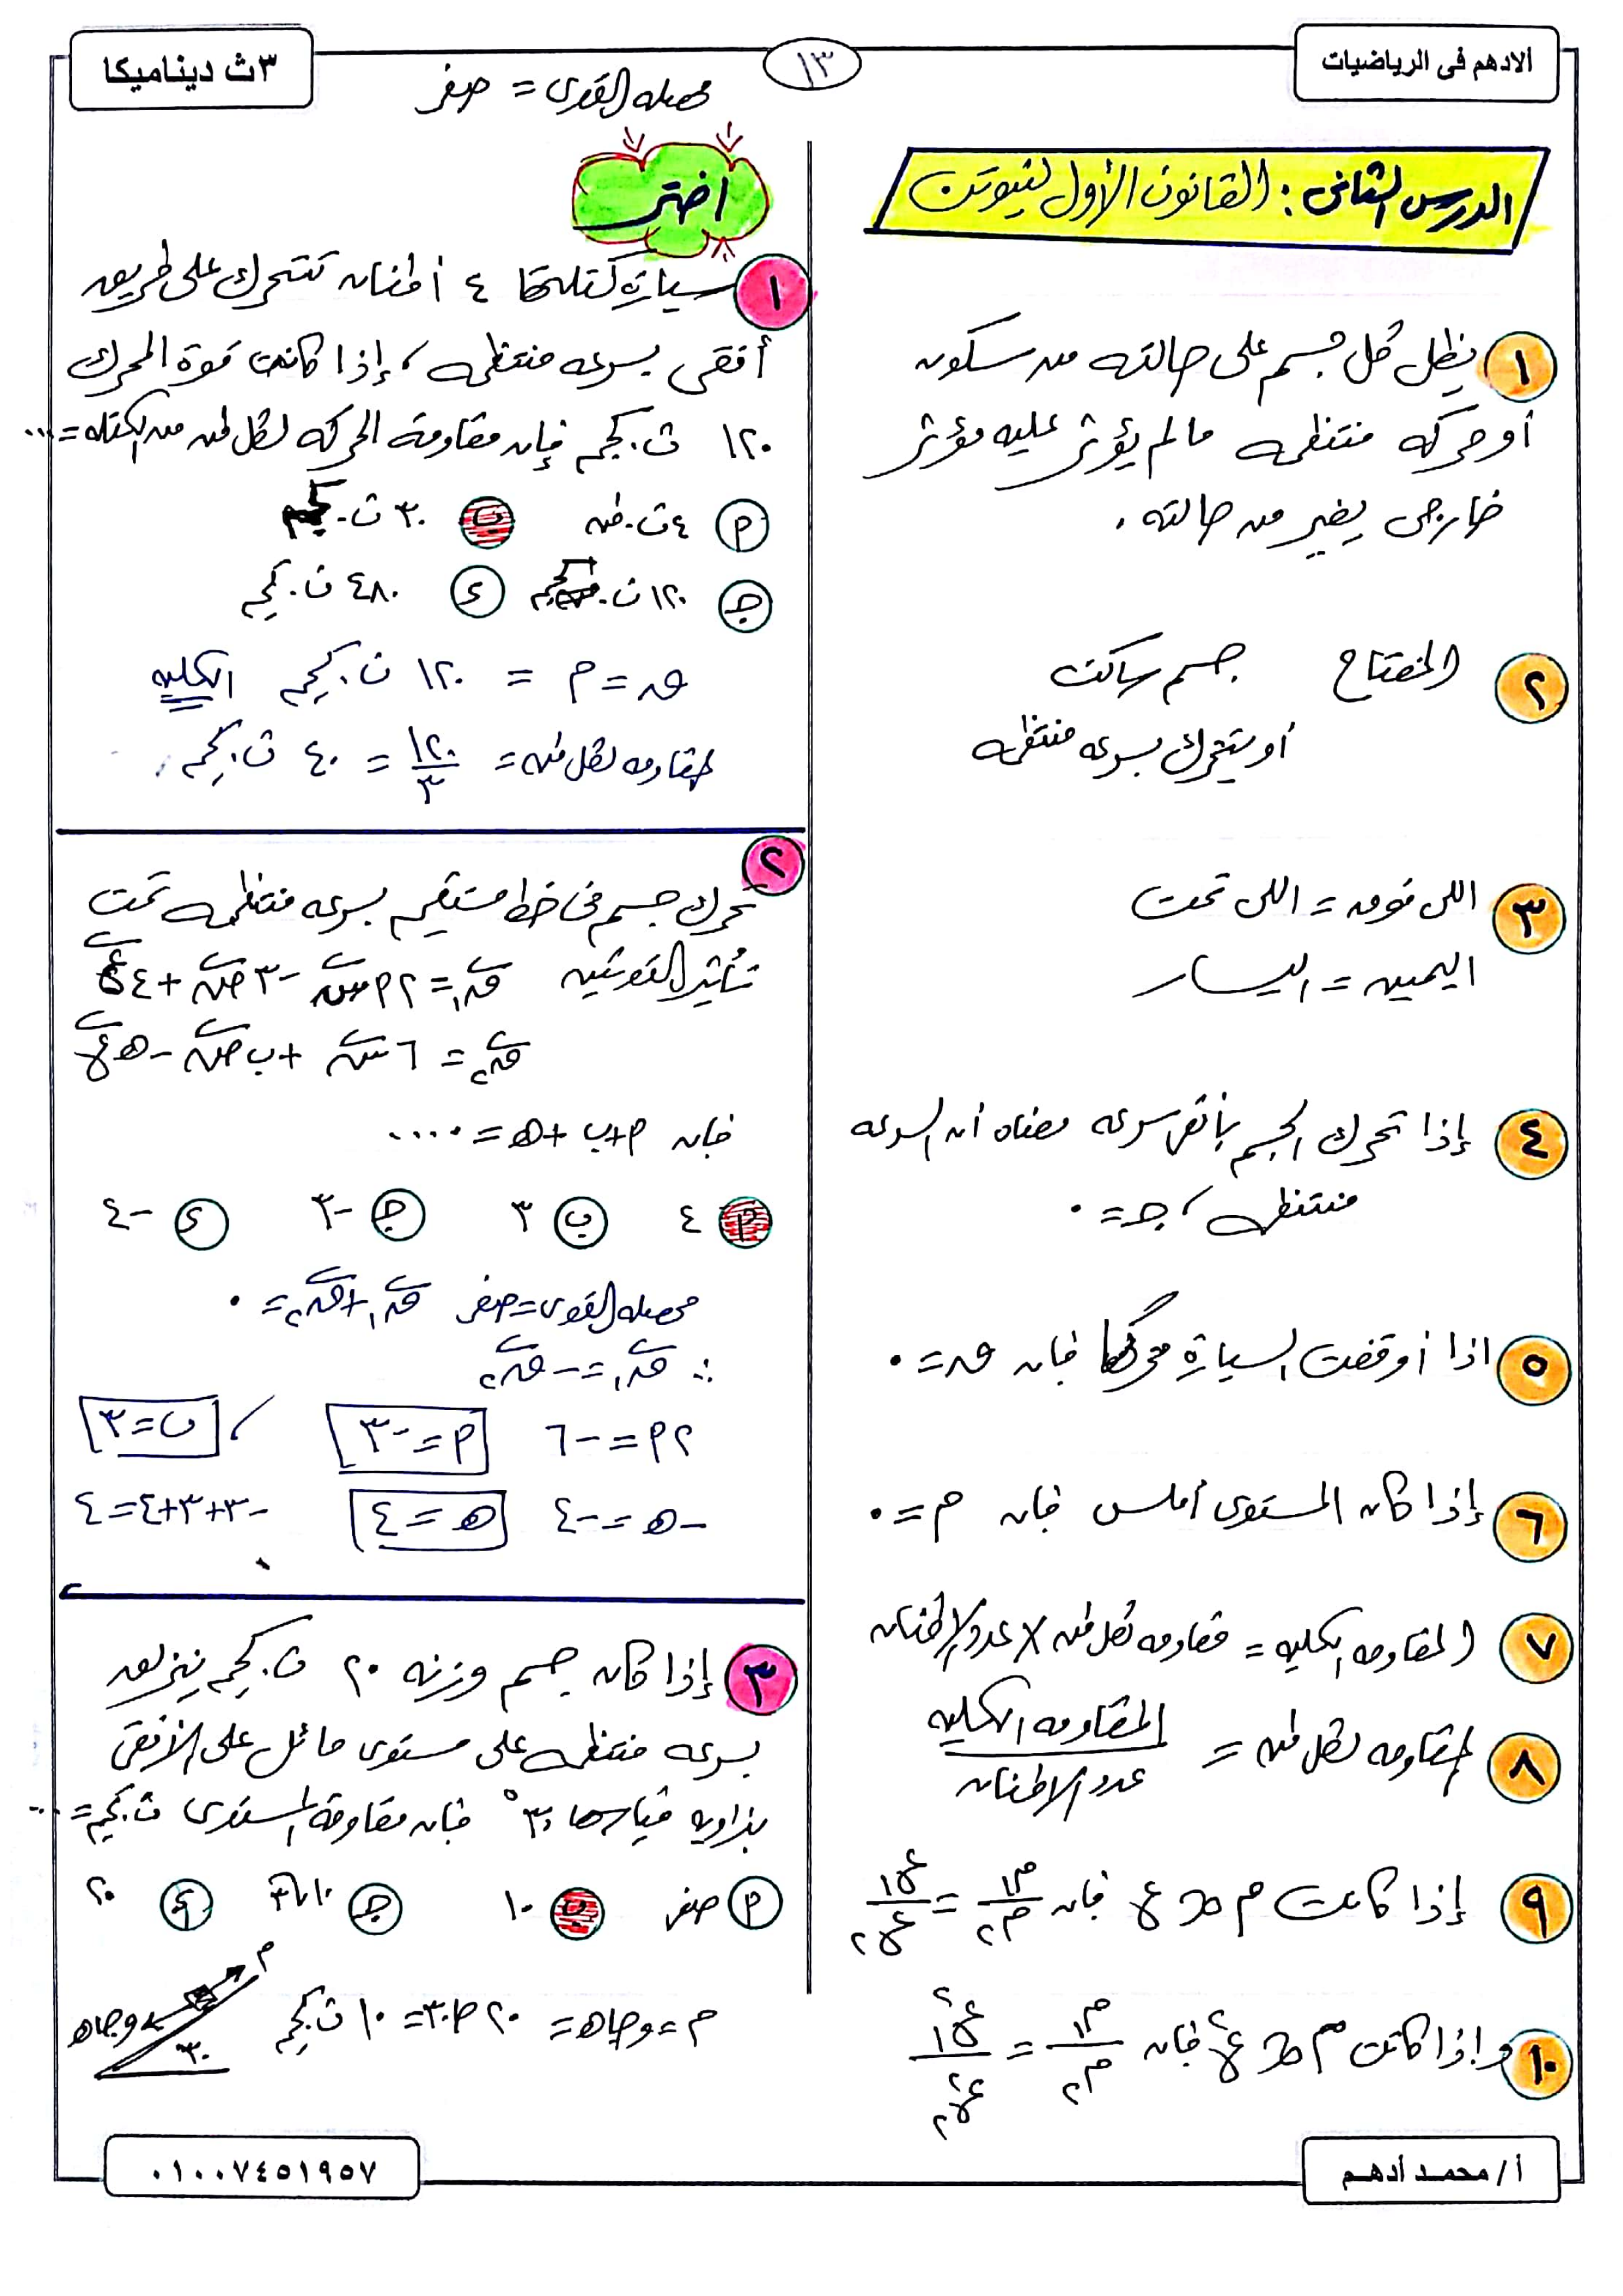 الادهم فى الرياضيات
١٣
٣ث ديناميكا
محصله القوى = صفر
الدرس الثانى : القانون الأول لنيوتن
١ يظل كل جسم على حالته من سكون
أو حركه منتظمه مالم يؤثر عليه مؤثر
خارجى يغير من حالته .
٢ المفتاح جسم ساكن
أو يتحرك بسرعه منتظمه
٣ اللى فوق = اللى تحت
اليمين = اليسار
٤ إذا تحرك الجسم بأقصى سرعه معناه أن السرعه
منتظمه ، جـ = ٠
٥ اذا أوقفت السيارة محركها فإن ق = ٠
٦ إذا كان المستوى أملس فإن م = ٠
٧ المقاومه الكليه = مقاومه لكل طن × عدد الاطنان
٨ المقاومه لكل طن = المقاومه الكليه / عدد الاطنان
٩ إذا كانت م ∝ ع فإن م١ / م٢ = ع١ / ع٢
١٠ وإذا كانت م ∝ ع٢ فإن م١ / م٢ = ع٢١ / ع٢٢
اختر
١ سيارة كتلتها ٤ أطنان تتحرك على طريق
أفقى بسرعه منتظمه ، إذا كانت قوة المحرك
١٢٠ ث.كجم فإن مقاومة الحركه لكل طن من الكتله = ...
أ ٤ ث.طن ب ٣٠ ث.كجم
جـ ١٢٠ ث.كجم د ٤٨٠ ث.كجم
ق = م = ١٢٠ ث.كجم الكليه
المقاومه لكل طن = ١٢٠ / ٣ = ٤٠ ث.كجم
٢ تحرك جسم فى خط مستقيم بسرعه منتظمه تحت
تأثير القوتين ق١ = ٢أ س - ٣ ص + ٤ ع
ق٢ = ٦ س + ب ص - هـ ع
فإن أ + ب + هـ = ....
أ ٤ ب ٣ جـ -٣ د -٤
محصله القوى = صفر ق١ + ق٢ = ٠
∴ ق١ = - ق٢
٢أ = -٦ أ = -٣ ، ب = ٣
-هـ = -٤ هـ = ٤ -٣+٣+٤ = ٤
٣ إذا كان جسم وزنه ٢٠ ث.كجم ينزلق
بسرعه منتظمه على مستوى مائل على الأفقى
بزاويه قياسها ٣٠° فإن مقاومة المستوى ث.كجم = ...
أ صفر ب ١٠ جـ ١٠√٣ د ٢٠
م = و حا هـ = ٢٠ حا ٣٠ = ١٠ ث.كجم
م
و حا هـ
٣٠
أ/ محمد أدهم
٠١٠٠٧٤٥١٩٥٧